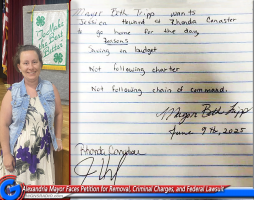 Make
Best
Better
Mayor Beth Tripp wants
Jessica Howard & Rhonda Canaster
to go home for the day,
Reasons
Saving on budget
Not following charter
Not following chain of command.
Mayor Beth Tripp
June 9th, 2025
Rhonda
Alexandria Mayor Faces Petition for Removal, Criminal Charges, and Federal Lawsuit